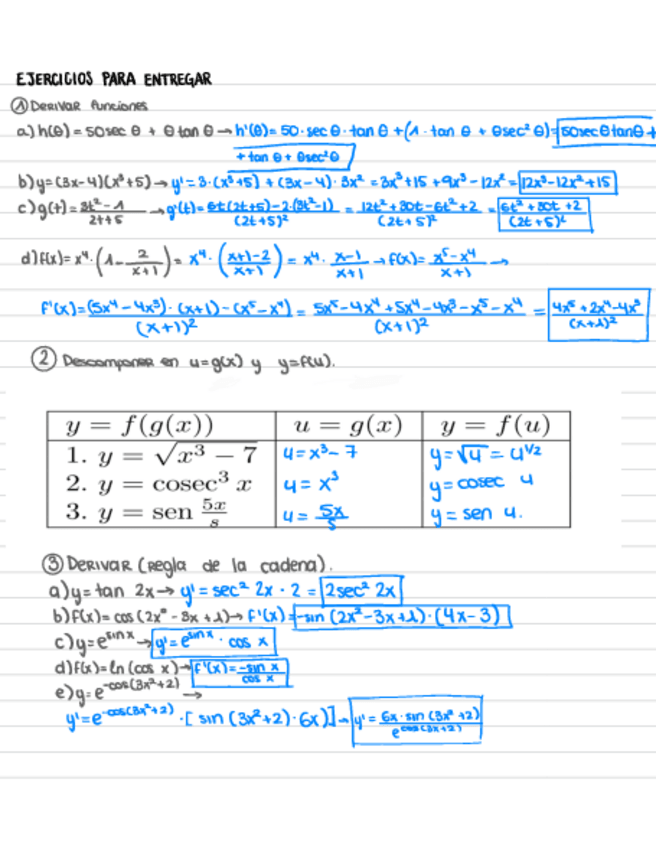 EJERCICIOS PARA ENTREGAR
① DERIVAR funciones
a) h(θ) = 50 sec θ + θ tan θ → h'(θ) = 50 · sec θ · tan θ + (1 · tan θ + θ sec² θ) = 50 sec θ tan θ +
+ tan θ + θ sec² θ
b) y = (3x-4)(x³+5) → y' = 3·(x³+5) + (3x-4)·3x² = 3x³+15+9x³-12x² = 12x³-12x²+15
c) g(t) = 3t²-1 / 2t+5 → g'(t) = 6t(2t+5)-2·(3t²-1) / (2t+5)² = 12t²+30t-6t²+2 / (2t+5)² = 6t²+30t+2 / (2t+5)²
d) f(x) = x⁴·(1- 2/x+1) = x⁴·(x+1-2 / x+1) = x⁴· x-1 / x+1 → f(x) = x⁵-x⁴ / x+1 →
f'(x) = (5x⁴-4x³)·(x+1)-(x⁵-x⁴) / (x+1)² = 5x⁵-4x⁴+5x⁴-4x³-x⁵-x⁴ / (x+1)² = 4x⁵+2x⁴-4x³ / (x+1)²
② Descomponer en u=g(x) y y=f(u).
y = f(g(x)) u = g(x) y = f(u)
1. y = √x³ − 7 u = x³-7 y = √u = u^1/2
2. y = cosec³ x u = x³ y = cosec u
3. y = sen 5x/s u = 5x/s y = sen u.
③ DERIVAR (regla de la cadena).
a) y = tan 2x → y' = sec² 2x · 2 = 2 sec² 2x
b) f(x) = cos (2x² - 3x + 1) → f'(x) = -sin (2x²-3x+1)·(4x-3)
c) y = e^sin x → y' = e^sin x · cos x
d) f(x) = ln (cos x) → f'(x) = -sin x / cos x
e) y = e^-cos(3x²+2) →
y' = e^-cos(3x²+2) ·[ sin (3x²+2)·6x)] → y' = 6x·sin (3x²+2) / e^cos(3x+2)